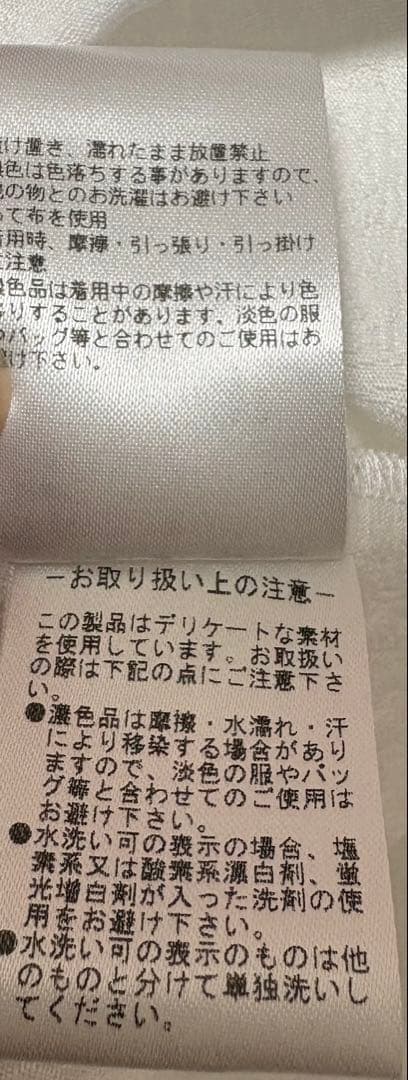 け置き、濡れたまま放置禁止
色は色落ちする事がありますので、
の物とのお洗濯はお避け下さい
て布を使用
用時、摩擦・引っ張り・引っ掛け
注意
色品は着用中の摩擦や汗により色
りすることがあります。淡色の服
バッグ等と合わせてのご使用はお
け下さい。
－お取り扱い上の注意－
この製品はデリケートな素材
を使用しています。お取扱い
の際は下記の点にご注意下さ
い。
●濃色品は摩擦・水濡れ・汗
により移染する場合があり
ますので、淡色の服やバッ
グ等と合わせてのご使用は
お避け下さい。
●水洗い可の表示の場合、塩
素系又は酸素系漂白剤、蛍
光増白剤が入った洗剤の使
用をお避け下さい。
●水洗い可の表示のものは他
のものと分けて単独洗いし
てください。